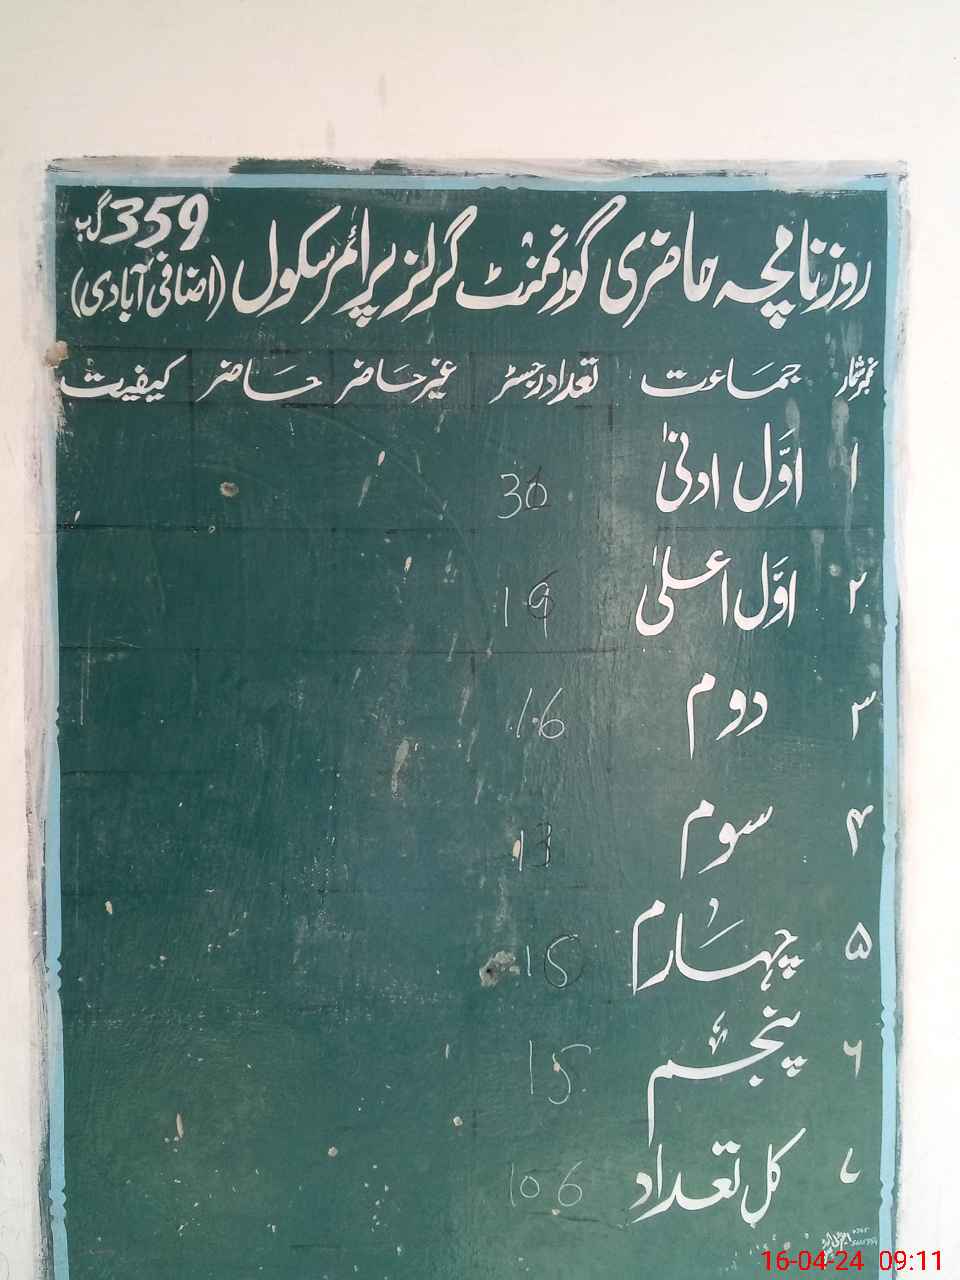 روزنامچہ حاضری گورنمنٹ گرلز پرائمر سکول 359 گ ب (اضافی آبادی)
نمبر شمار جماعت تعداد رجسٹر غیر حاضر حاضر کیفیت
۱ اوّل ادنیٰ
۲ اوّل اعلیٰ 19
۳ دوم 16
۴ سوم 13
۵ چہارم
۶ پنجم 15
۷ کل تعداد 106
16-04-24 09:11